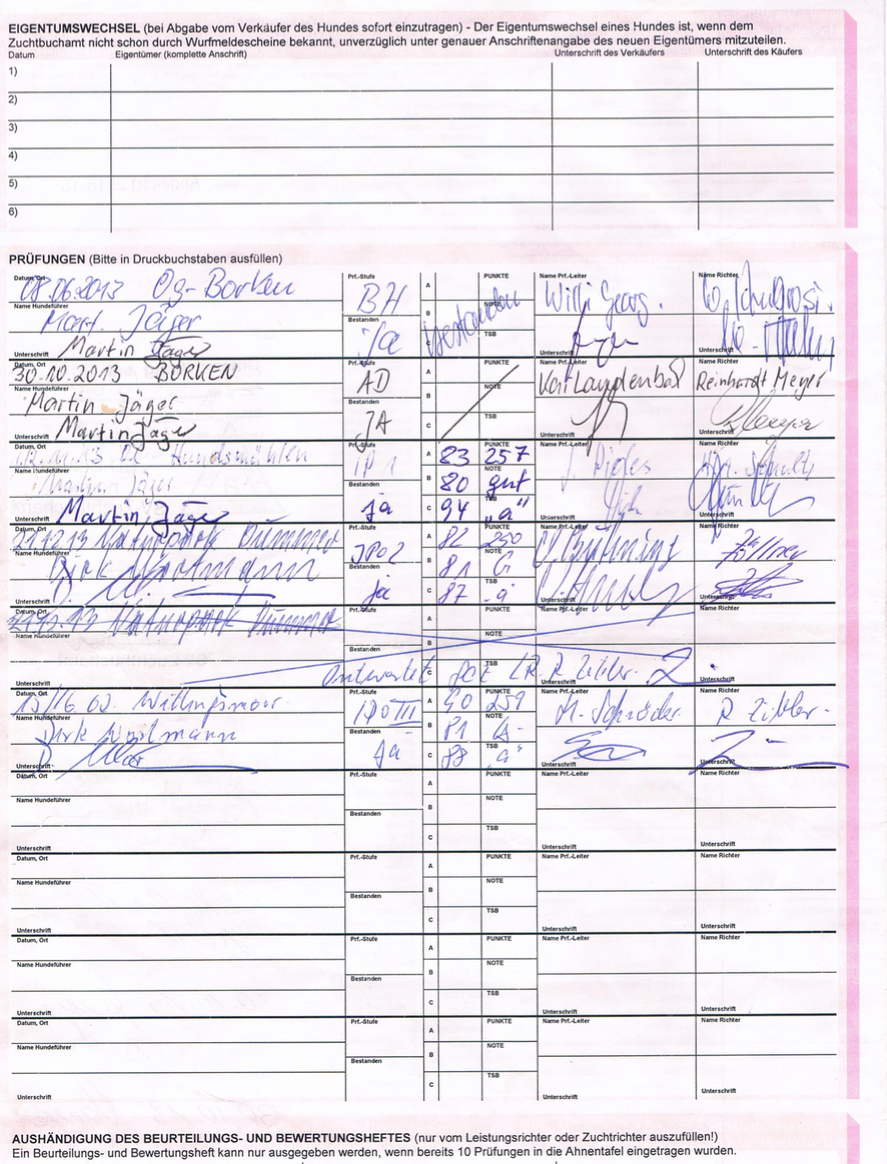 EIGENTUMSWECHSEL (bei Abgabe vom Verkäufer des Hundes sofort einzutragen) - Der Eigentumswechsel eines Hundes ist, wenn dem
Zuchtbuchamt nicht schon durch Wurfmeldescheine bekannt, unverzüglich unter genauer Anschriftenangabe des neuen Eigentümers mitzuteilen.
Datum Eigentümer (komplette Anschrift) Unterschrift des Verkäufers Unterschrift des Käufers
1)
2)
3)
4)
5)
6)
PRÜFUNGEN (Bitte in Druckbuchstaben ausfüllen)
Datum, Ort Prf.-Stufe A PUNKTE Name Prf.-Leiter Name Richter
08.06.2013 Og-Borken BH Willi Georg.
Name Hundeführer B NOTE
Mart. Jäger Bestanden bestanden
Ja C TSB
Unterschrift Martin Jäger Unterschrift Unterschrift
Datum, Ort Prf.-Stufe A PUNKTE Name Prf.-Leiter Name Richter
30.10.2013 BORKEN AD Reinhardt Meyer
Name Hundeführer B NOTE
Martin Jäger Bestanden
JA C TSB
Unterschrift Martin Jäger Unterschrift Unterschrift
Datum, Ort Prf.-Stufe A 83 PUNKTE 257 Name Prf.-Leiter Name Richter
Hundsmühlen IP 1
Name Hundeführer B 80 NOTE gut
Martin Jäger Bestanden
ja C 94 TSB "a"
Unterschrift Martin Jäger Unterschrift Unterschrift
Datum, Ort Prf.-Stufe A 82 PUNKTE 250 Name Prf.-Leiter Name Richter
21.12.13 Naturpark Dümmer IPO2
Name Hundeführer B 81 NOTE G
Dirk Bestanden
ja C 87 TSB "a"
Unterschrift Unterschrift Unterschrift
Datum, Ort Prf.-Stufe A PUNKTE Name Prf.-Leiter Name Richter
21.12.13 Naturpark Dümmer
Name Hundeführer B NOTE
Bestanden
C TSB
Unterschrift Unterschrift Unterschrift
Datum, Ort Prf.-Stufe A 90 PUNKTE 259 Name Prf.-Leiter Name Richter
IPO III M. Schröder
Name Hundeführer B 81 NOTE G-
Dirk Bestanden
Ja C 88 TSB "a"
Unterschrift Unterschrift Unterschrift
Datum, Ort Prf.-Stufe A PUNKTE Name Prf.-Leiter Name Richter
Name Hundeführer B NOTE
Bestanden
C TSB
Unterschrift Unterschrift Unterschrift
Datum, Ort Prf.-Stufe A PUNKTE Name Prf.-Leiter Name Richter
Name Hundeführer B NOTE
Bestanden
C TSB
Unterschrift Unterschrift Unterschrift
Datum, Ort Prf.-Stufe A PUNKTE Name Prf.-Leiter Name Richter
Name Hundeführer B NOTE
Bestanden
C TSB
Unterschrift Unterschrift Unterschrift
Datum, Ort Prf.-Stufe A PUNKTE Name Prf.-Leiter Name Richter
Name Hundeführer B NOTE
Bestanden
C TSB
Unterschrift Unterschrift Unterschrift
AUSHÄNDIGUNG DES BEURTEILUNGS- UND BEWERTUNGSHEFTES (nur vom Leistungsrichter oder Zuchtrichter auszufüllen!)
Ein Beurteilungs- und Bewertungsheft kann nur ausgegeben werden, wenn bereits 10 Prüfungen in die Ahnentafel eingetragen wurden.